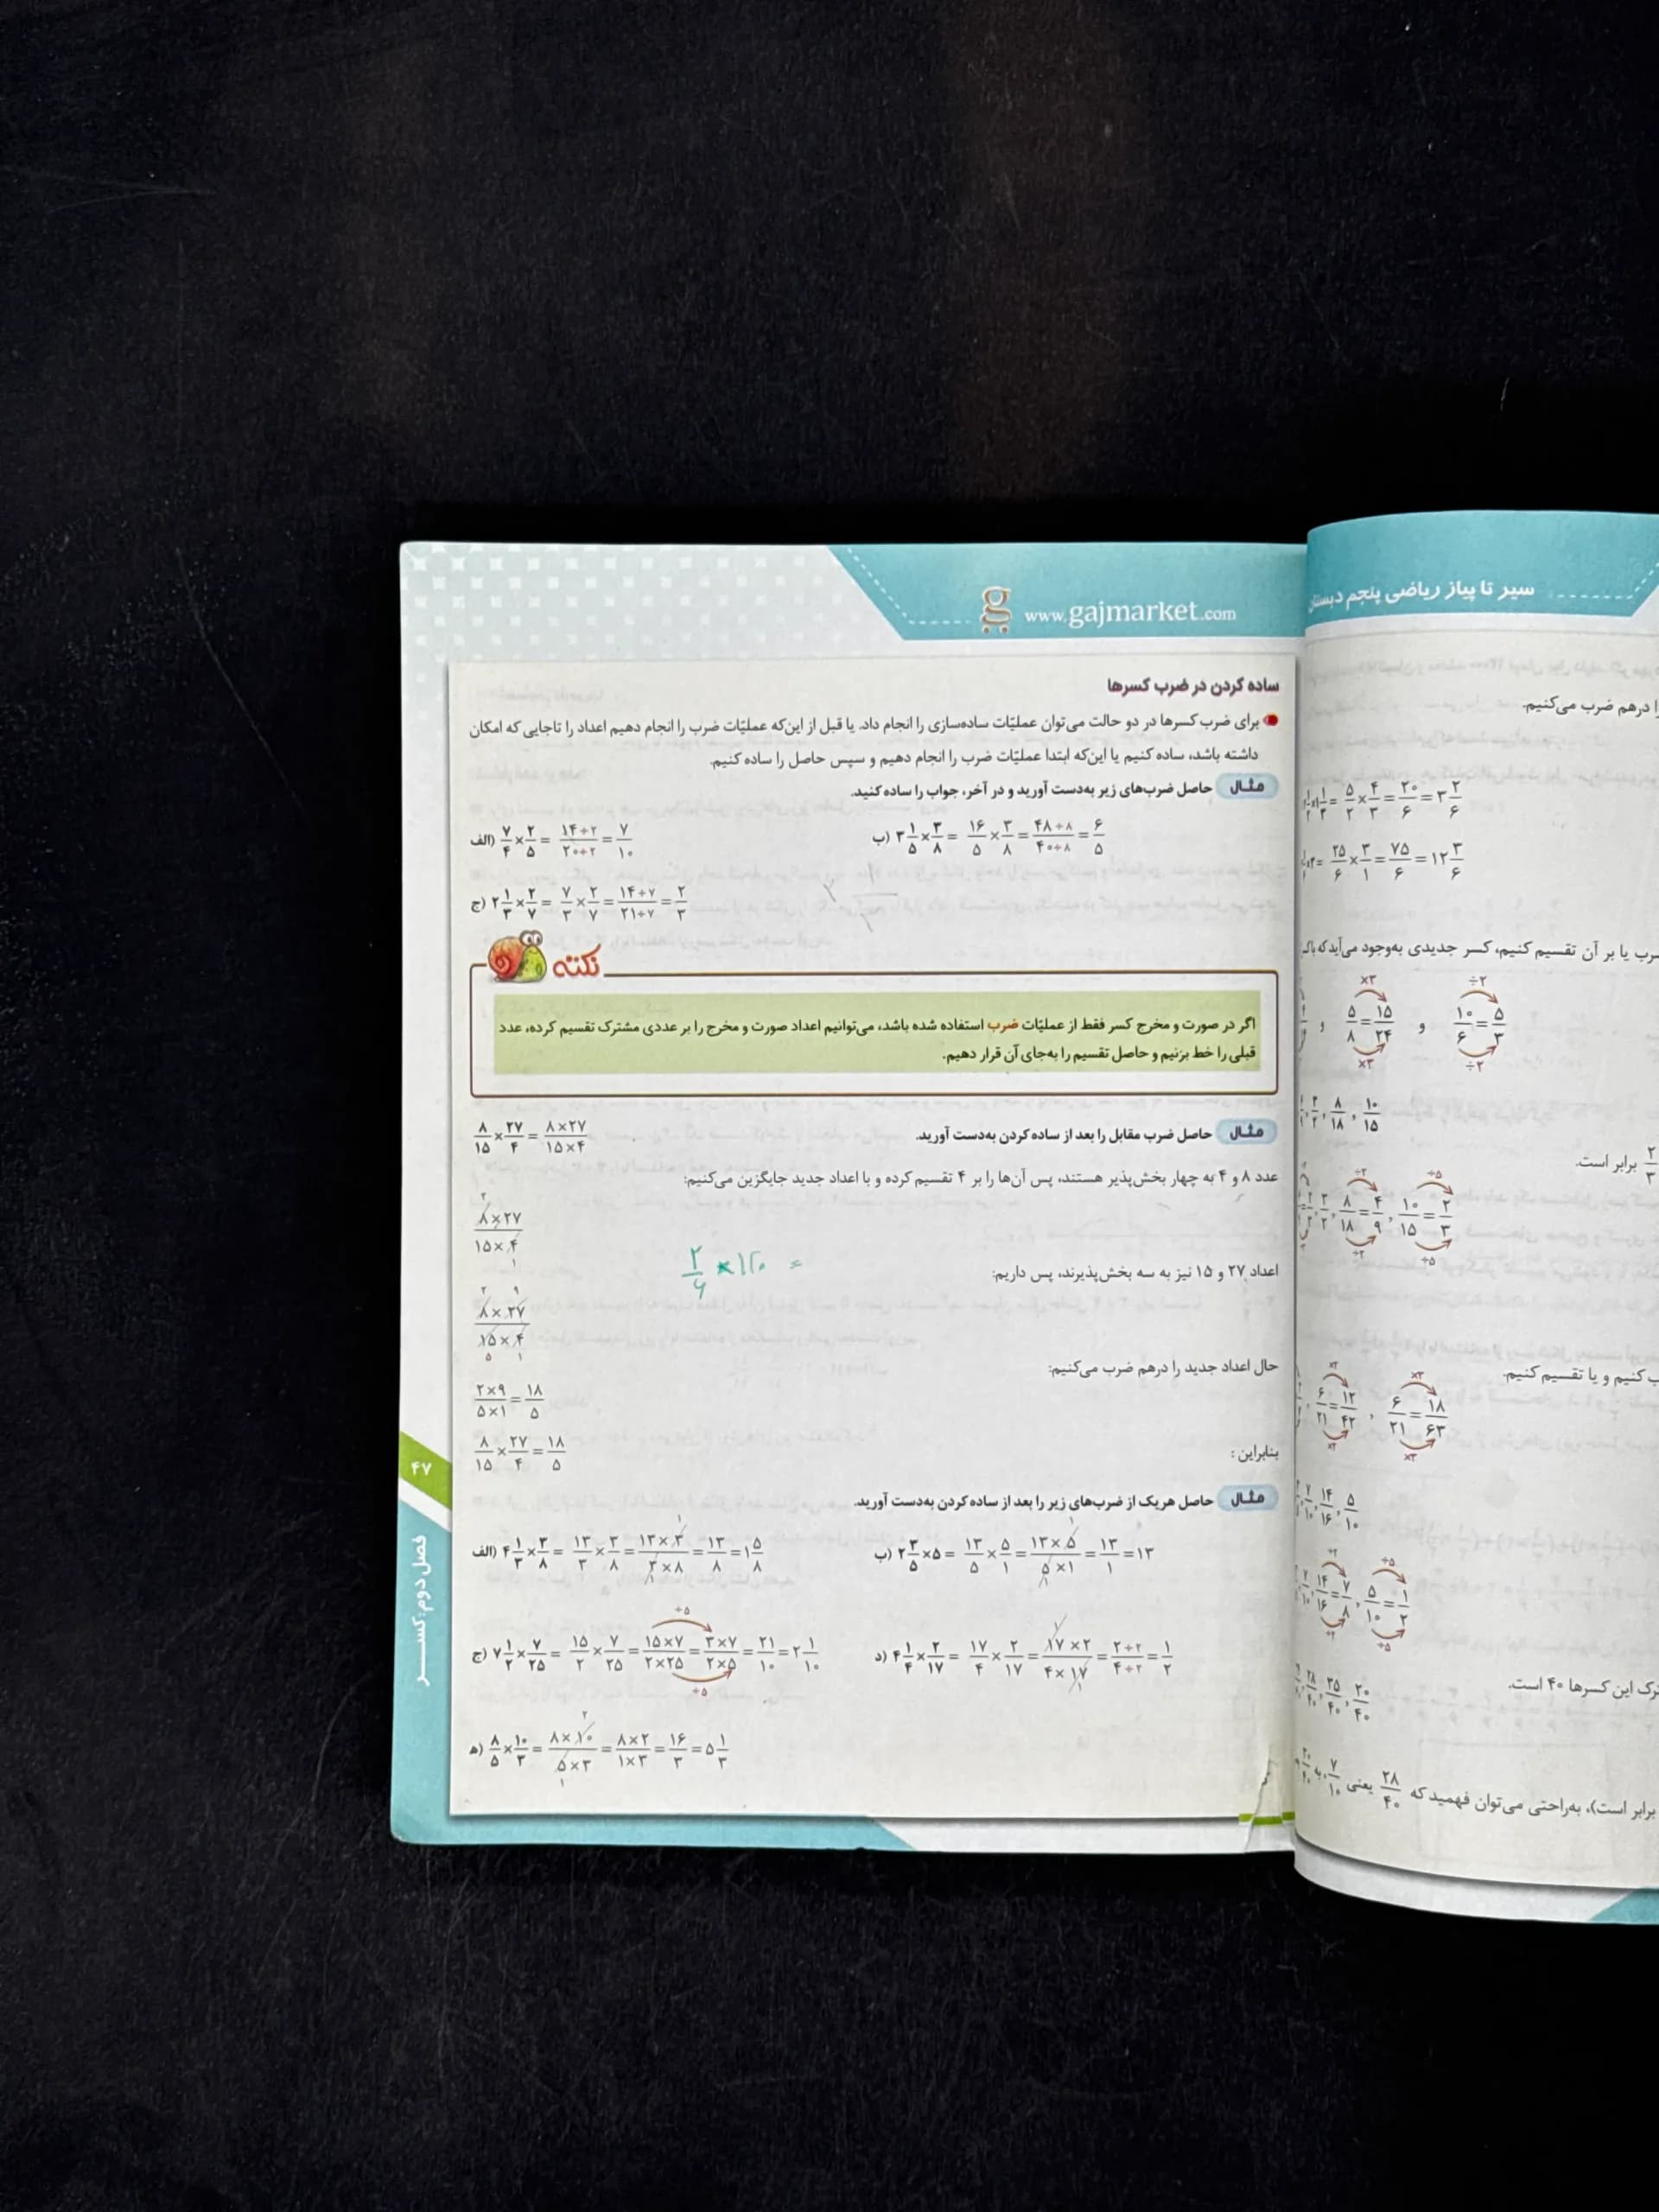 www.gajmarket.com
سیر تا پیاز ریاضی پنجم دبستان
ساده کردن در ضرب کسرها
برای ضرب کسرها در دو حالت می‌توان عملیّات ساده‌سازی را انجام داد. یا قبل از این‌که عملیّات ضرب را انجام دهیم اعداد را تاجایی که امکان
داشته باشد، ساده کنیم یا این‌که ابتدا عملیّات ضرب را انجام دهیم و سپس حاصل را ساده کنیم.
مثال حاصل ضرب‌های زیر به‌دست آورید و در آخر، جواب را ساده کنید.
الف) ۷/۴ × ۲/۵ = ۱۴÷۲/۲۰÷۲ = ۷/۱۰
ب) ۳ ۱/۵ × ۳/۸ = ۱۶/۵ × ۳/۸ = ۴۸÷۸/۴۰÷۸ = ۶/۵
ج) ۲ ۱/۳ × ۲/۷ = ۷/۳ × ۲/۷ = ۱۴÷۷/۲۱÷۷ = ۲/۳
نکته
اگر در صورت و مخرج کسر فقط از عملیّات ضرب استفاده شده باشد، می‌توانیم اعداد صورت و مخرج را بر عددی مشترک تقسیم کرده، عدد
قبلی را خط بزنیم و حاصل تقسیم را به‌جای آن قرار دهیم.
مثال حاصل ضرب مقابل را بعد از ساده کردن به‌دست آورید.
۸/۱۵ × ۲۷/۴ = ۸×۲۷/۱۵×۴
عدد ۸ و ۴ به چهار بخش‌پذیر هستند، پس آن‌ها را بر ۴ تقسیم کرده و با اعداد جدید جایگزین می‌کنیم:
۲
۸×۲۷/۱۵×۴
۱
اعداد ۲۷ و ۱۵ نیز به سه بخش‌پذیرند، پس داریم:
۲ ۹
۸×۲۷/۱۵×۴
۵ ۱
حال اعداد جدید را درهم ضرب می‌کنیم:
۲×۹/۵×۱ = ۱۸/۵
بنابراین :
۸/۱۵ × ۲۷/۴ = ۱۸/۵
مثال حاصل هریک از ضرب‌های زیر را بعد از ساده کردن به‌دست آورید.
الف) ۴ ۱/۳ × ۳/۸ = ۱۳/۳ × ۳/۸ = ۱۳×۳/۳×۸ = ۱۳/۸ = ۱ ۵/۸
ب) ۲ ۳/۵ × ۵ = ۱۳/۵ × ۵/۱ = ۱۳×۵/۵×۱ = ۱۳/۱ = ۱۳
ج) ۷ ۱/۲ × ۷/۲۵ = ۱۵/۲ × ۷/۲۵ = ۱۵×۷/۲×۲۵ = ۳×۷/۲×۵ = ۲۱/۱۰ = ۲ ۱/۱۰
÷۵
÷۵
د) ۴ ۱/۴ × ۲/۱۷ = ۱۷/۴ × ۲/۱۷ = ۱۷×۲/۴×۱۷ = ۲÷۲/۴÷۲ = ۱/۲
ه) ۸/۵ × ۱۰/۳ = ۸×۱۰/۵×۳ = ۸×۲/۱×۳ = ۱۶/۳ = ۵ ۱/۳
۴۷
فصل دوم: کسر
را درهم ضرب می‌کنیم.
۵/۲ × ۴/۳ = ۲۰/۶ = ۳ ۲/۶
۲۵/۶ × ۳/۱ = ۷۵/۶ = ۱۲ ۳/۶
یا بر آن تقسیم کنیم، کسر جدیدی به‌وجود می‌آید که با
۵/۸ = ۱۵/۲۴ و ۱۰/۶ = ۵/۳
×۳ ÷۲
×۳ ÷۲
۸/۱۸ , ۱۰/۱۵
۲/۳ برابر است.
۸/۱۸ = ۴/۹ , ۱۰/۱۵ = ۲/۳
کنیم و یا تقسیم کنیم.
۶/۲۱ = ۱۲/۴۲ , ۶/۲۱ = ۱۸/۶۳
۱۴/۱۶ , ۵/۱۰
۱۴/۱۶ = ۷/۸ , ۵/۱۰ = ۱/۲
این کسرها ۴۰ است.
۲۸/۴۰ , ۳۵/۴۰ , ۲۰/۴۰
برابر است)، به‌راحتی می‌توان فهمید که ۲۸/۴۰ یعنی ۷/۱۰، به